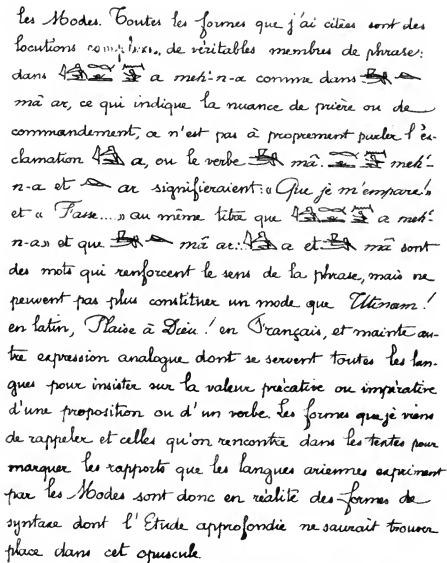 les Modes. Toutes les formes que j'ai citées sont des
locutions de véritables membres de phrase:
dans a meh'-n-a comme dans
mâ ar, ce qui indique la nuance de prière ou de
commandement, ce n'est pas à proprement parler l'ex-
clamation a, ou le verbe mâ. meh'-
n-a et ar signifieraient: « Que je m'empare! »
et « Fasse.... » au même titre que a meh'-
n-a » et que mâ ar. a et mâ sont
des mots qui renforcent le sens de la phrase, mais ne
peuvent pas plus constituer un mode que Utinam!
en latin, Plaise à Dieu! en Français, et mainte au-
tre expression analogue dont se servent toutes les lan-
gues pour insister sur la valeur précative ou impérative
d'une proposition ou d'un verbe. Les formes que je viens
de rappeler et celles qu'on rencontre dans les textes pour
marquer les rapports que les langues ariennes expriment
par les Modes sont donc en réalité des formes de
syntaxe dont l'Etude approfondie ne saurait trouver
place dans cet opuscule.